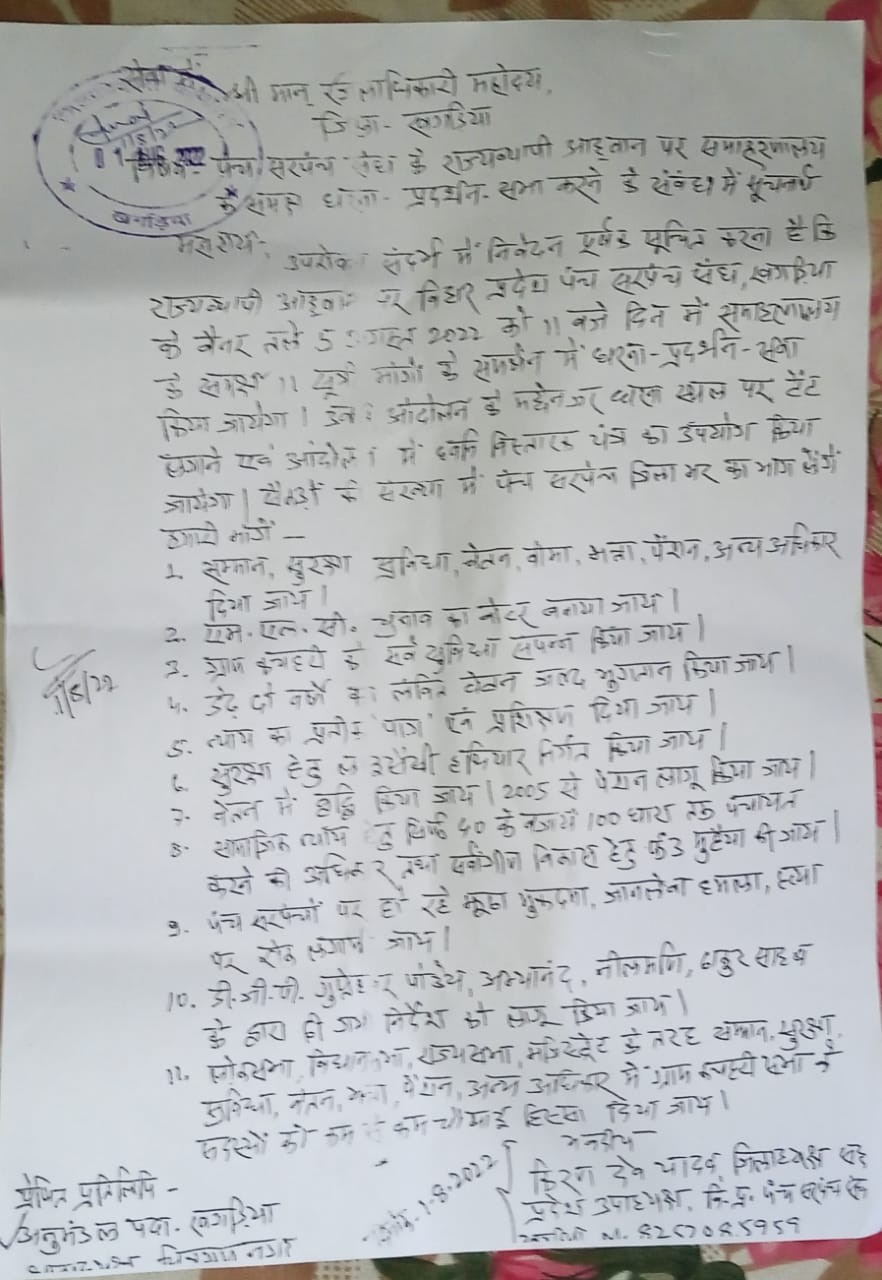 सेवा में,
श्री मान् समाधिकारी महोदय,
जिला- खगड़िया
विषय- पंच सरपंच संघ के राज्यव्यापी आह्वान पर समाहरणालय
के समक्ष धरना- प्रदर्शन- सभा करने के संबंध में सूचनार्थ
खगड़िया
महाशय,
उपरोक्त संदर्भ में निवेदन पूर्वक सूचित करना है कि
राज्यव्यापी आह्वान पर बिहार प्रदेश पंच सरपंच संघ, खगड़िया
के बैनर तले 5 अगस्त 2022 को 11 बजे दिन में समाहरणालय
के समक्ष 11 सूत्री मांगों के समर्थन में धरना-प्रदर्शन-सभा
किया जायेगा। उक्त आंदोलन के मद्देनजर धरना स्थल पर टेंट
लगाने एवं आंदोलन में ध्वनि विस्तारक यंत्र का उपयोग किया
जायेगा। सैकड़ों की संख्या में पंच सरपंच जिला भर का भाग लेंगें
हमारी मांगें —
1. सम्मान, सुरक्षा सुविधा, वेतन, बीमा, भत्ता, पेंशन, अन्य अधिकार
दिया जाय।
2. एम. एल. सी. चुनाव का वोटर बनाया जाय।
3. ग्राम कचहरी को सर्व सुविधा संपन्न किया जाय।
4. डेढ़ दो वर्षों का लंबित वेतन जल्द भुगतान किया जाय।
5. न्याय का प्रतीक पाग एवं प्रशिक्षण दिया जाय।
6. सुरक्षा हेतु लाइसेंसी हथियार निर्गत किया जाय।
7. वेतन में वृद्धि किया जाय। 2005 से पेंशन लागू किया जाय।
8. सामाजिक न्याय हेतु सिर्फ 40 के बजाय 100 धारा तक पंचायत
करने की अधिकार तथा सर्वांगीण विकास हेतु फंड मुहैया की जाय।
9. पंच सरपंचों पर हो रहे झूठा मुकदमा, जानलेवा हमला, हत्या
पर रोक लगाया जाय।
10. डी. जी. पी. गुप्तेश्वर पांडेय, अभयानंद, नीलमणि, ठाकुर साहब
के द्वारा दी गयी निर्देश को लागू किया जाय।
11. लोकसभा, विधानसभा, राज्यसभा, मजिस्ट्रेट के तरह सम्मान, सुरक्षा,
सुविधा, वेतन, भत्ता, पेंशन, अन्य अधिकार में ग्राम कचहरी सभा के
सदस्यों को कम से कम चौथाई हिस्सा दिया जाय।
1/8/22
भवदीय
किरण देव यादव जिलाध्यक्ष सह
प्रदेश उपाध्यक्ष, बि. प्र. पंच सरपंच संघ
M. 8252085959
1.8.2022
प्रेषित प्रतिलिपि -
अनुमंडल पदा. खगड़िया
चित्रगुप्त नगर